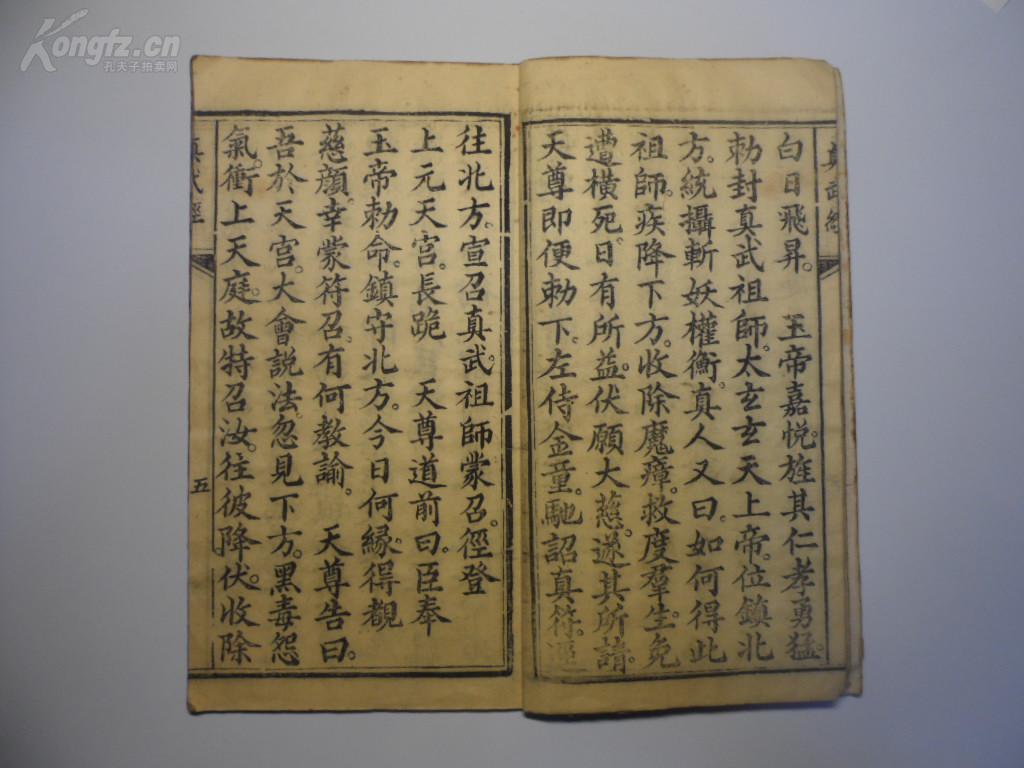 Kongfz.cn
孔夫子拍卖网
真武經
白日飛昇。　玉帝嘉悅。旌其仁孝勇猛。
勅封真武祖師。太玄玄天上帝。位鎮北
方。統攝斬妖權衡。真人又曰。如何得此
祖師。疾降下方。收除魔瘴。救度羣生。免
遭橫死。日有所益。伏願大慈。遂其所請。
天尊即便勅下。左侍金童。馳詔真符。逕
往北方。宣召真武祖師蒙召。徑登
上元天宮。長跪　天尊道前曰。臣奉
玉帝勅命。鎮守北方。今日何緣。得覩
慈顏。幸蒙符召。有何教諭。　天尊告曰。
吾於天宮。大會說法。忽見下方。黑毒怨
氣。衝上天庭。故特召汝。往彼降伏。收除
真武經
五